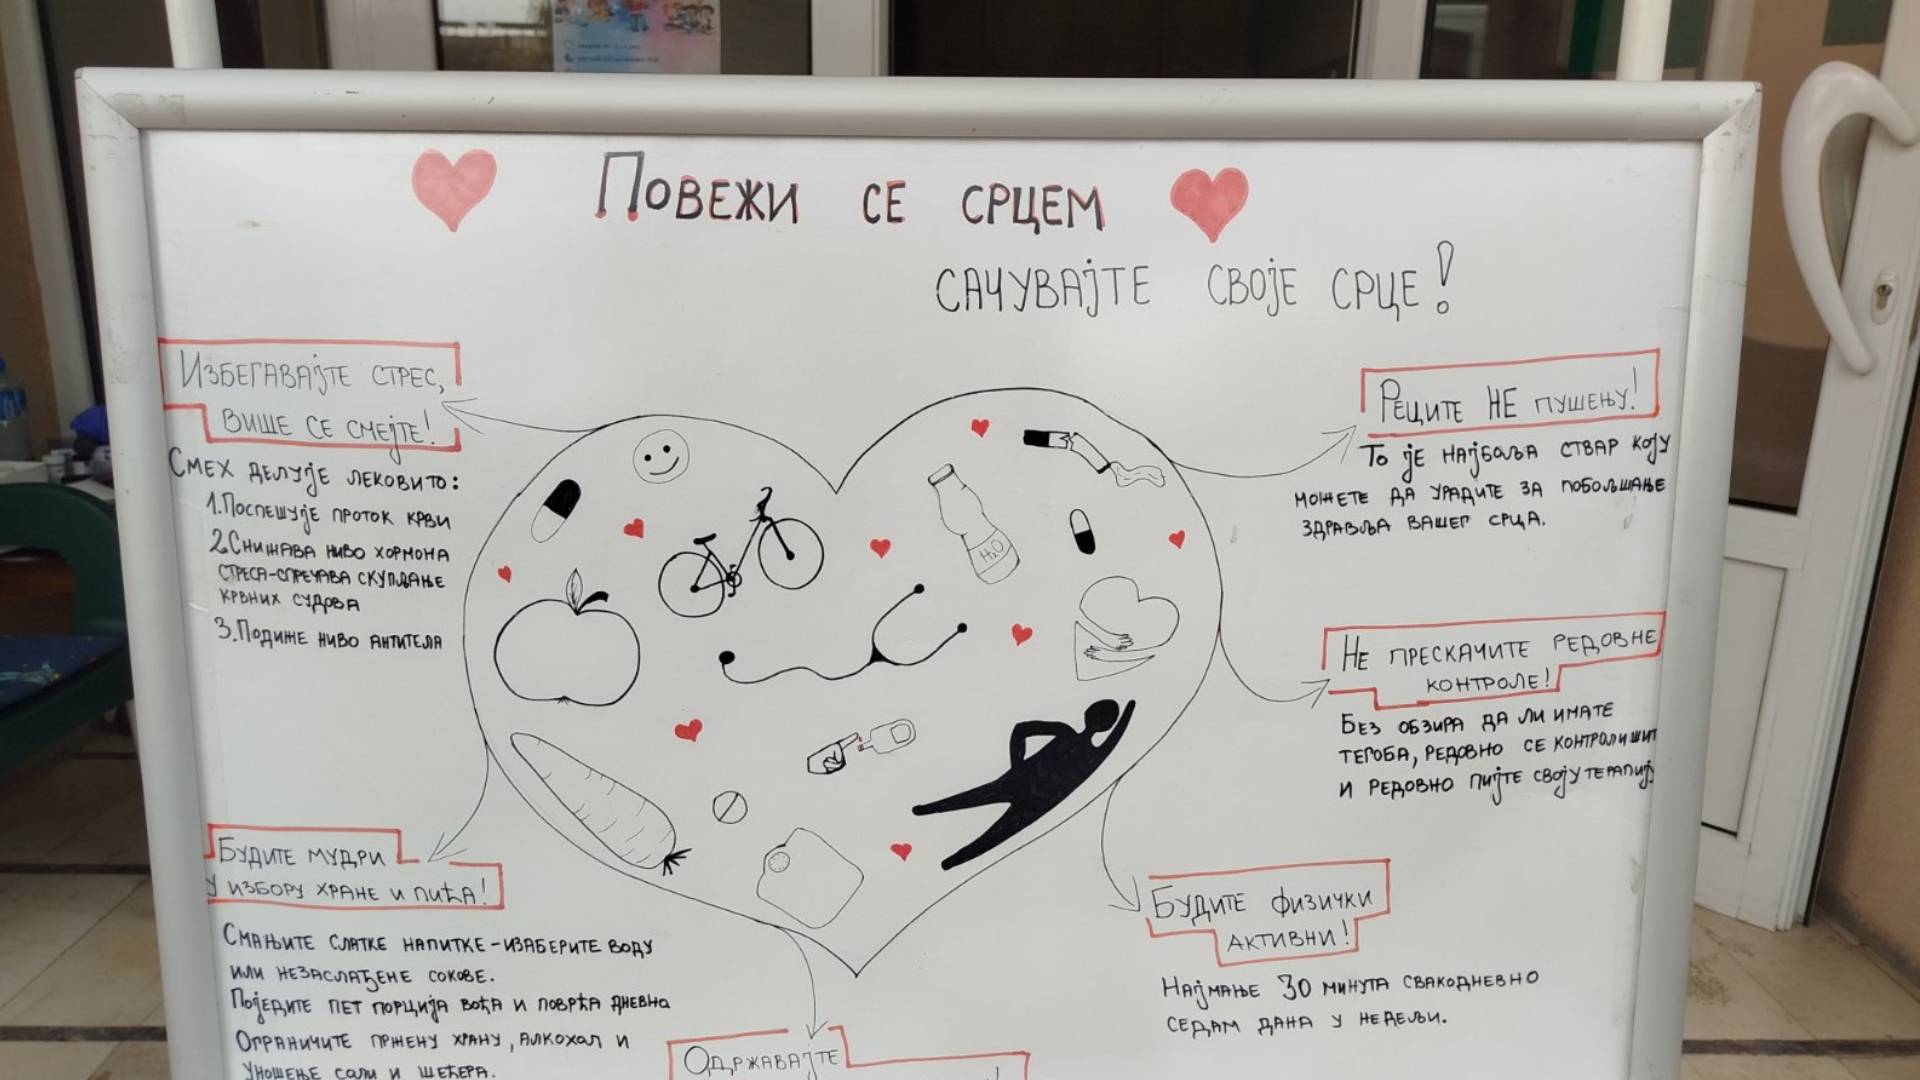 Повежи се срцем
сачувајте своје срце!
Избегавајте стрес,
више се смејте!
Смех делује лековито:
1.Поспешује проток крви
2.Снижава ниво хормона
стреса-спречава скупљање
крвних судова
3.Подиже ниво антитела
Реците НЕ пушењу!
То је најбоља ствар коју
можете да урадите за побољшање
здравља вашег срца.
H₂O
Не прескачите редовне
контроле!
Без обзира да ли имате
тегоба, редовно се контролишит
и редовно пијте своју терапију
Будите мудри
у избору хране и пића!
Смањите слатке напитке-изаберите воду
или незаслађене сокове.
Поједите пет порција воћа и поврћа дневна
Ограничите пржену храну, алкохол и
уношење соли и шећера.
Будите физички
активни!
Најмање 30 минута свакодневно
седам дана у недељи.
Одржавајте